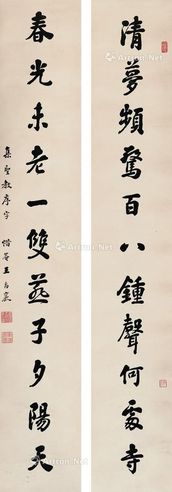 清夢頻驚百八鍾聲何處寺
春光未老一雙燕子夕陽天
集聖教序字